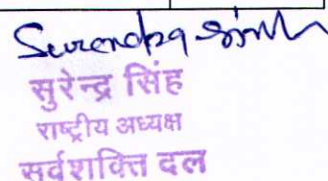 Surendra Singh
सुरेन्द्र सिंह
राष्ट्रीय अध्यक्ष
सर्वशक्ति दल